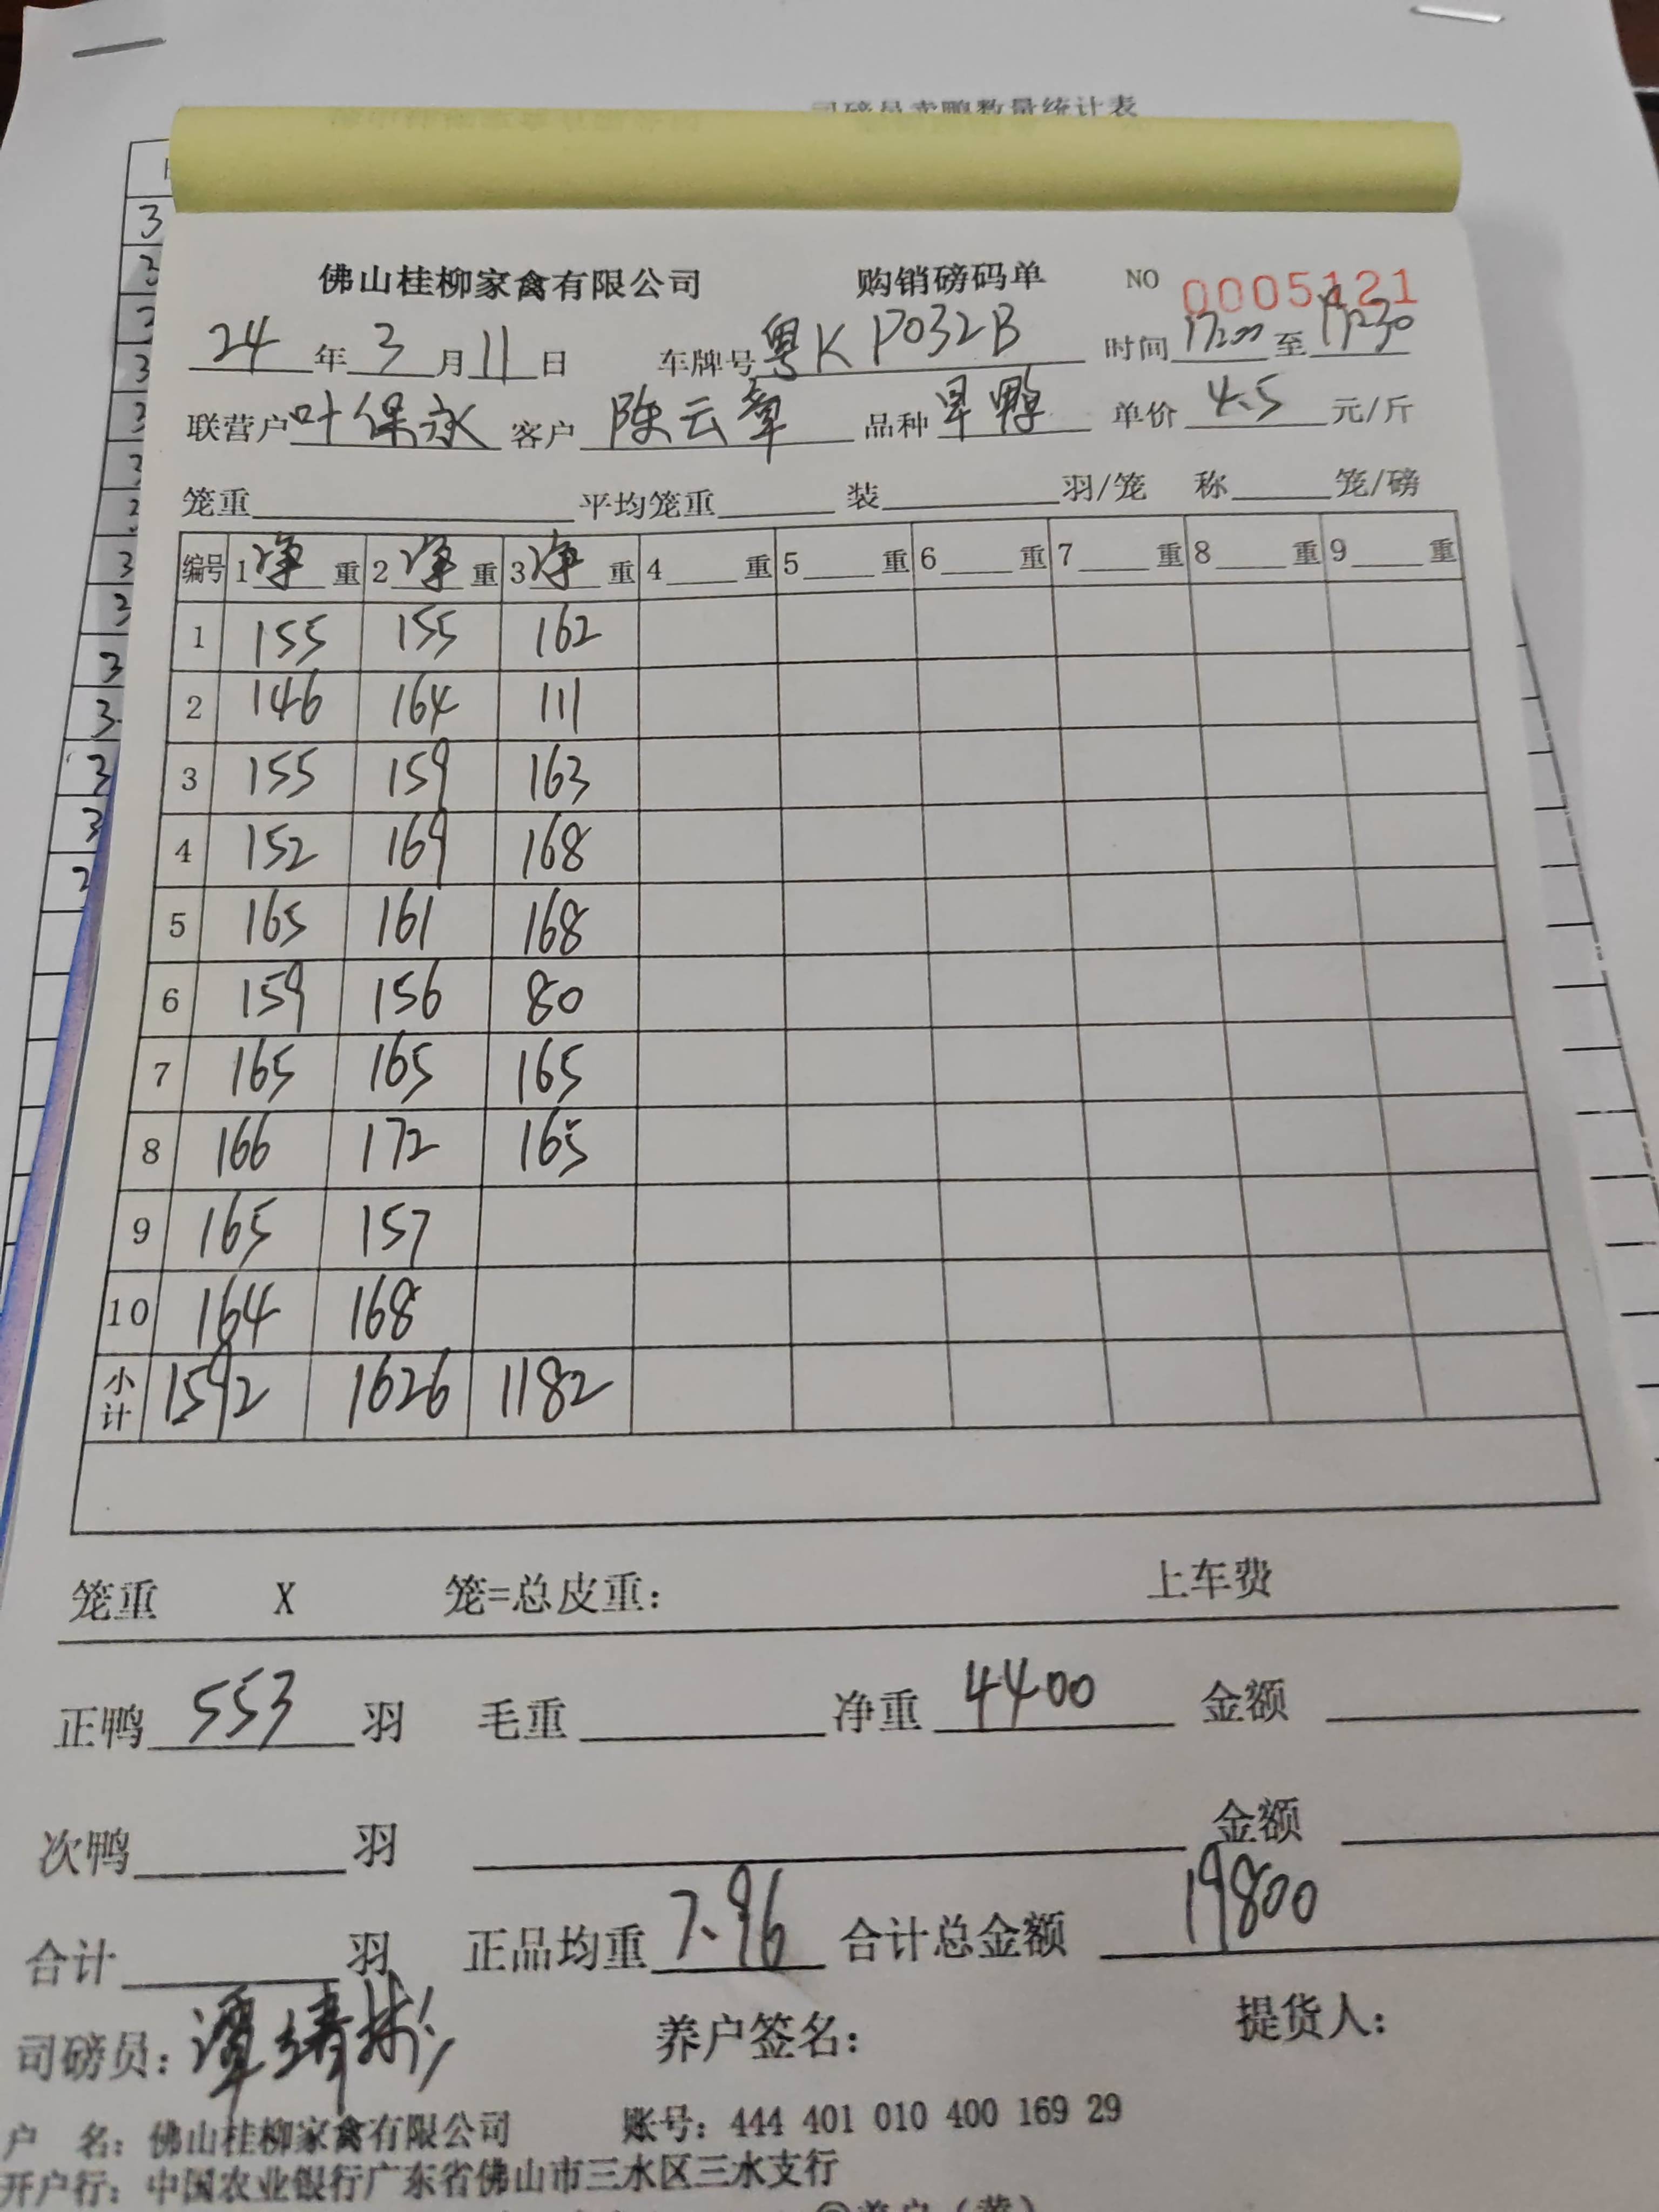 司磅员卖鸭数量统计表
佛山桂柳家禽有限公司 购销磅码单 NO 0005121
24年3月11日 车牌号粤K P032B 时间17:00至17:30
联营户叶保永 客户 陈云章 品种旱鸭 单价4.5元/斤
笼重 平均笼重 装 羽/笼 称 笼/磅
编号 1净重 2净重 3净重 4 重 5 重 6 重 7 重 8 重 9 重
1 155 155 162
2 146 164 111
3 155 159 163
4 152 169 168
5 165 161 168
6 159 156 80
7 165 165 165
8 166 172 165
9 165 157
10 164 168
小计 1592 1626 1182
笼重 X 笼=总皮重: 上车费
正鸭 553 羽 毛重 净重 4400 金额
次鸭 羽 金额
合计 羽 正品均重 7.96 合计总金额 19800
司磅员: 养户签名: 提货人:
户 名: 佛山桂柳家禽有限公司 账号: 444 401 010 400 169 29
开户行: 中国农业银行广东省佛山市三水区三水支行